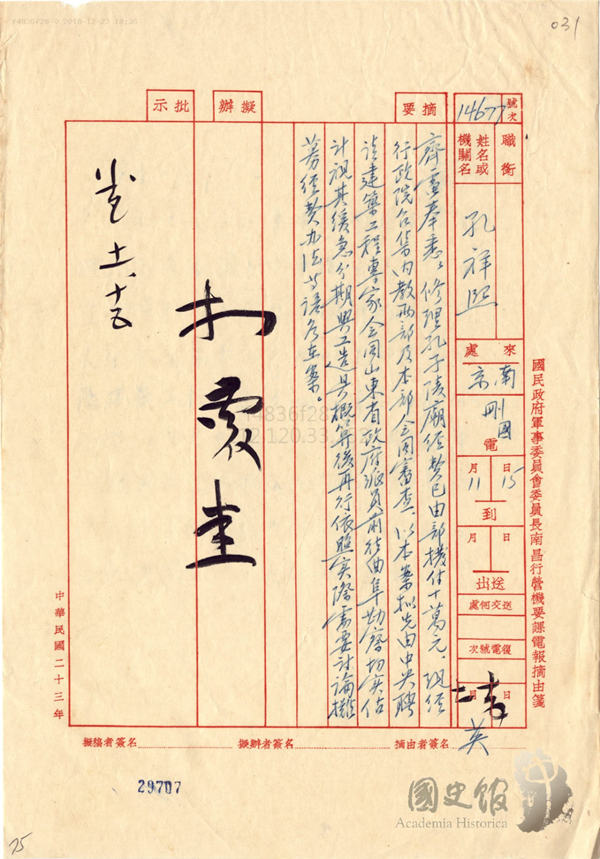 031
號次
14677
職銜
姓名或
機關名
孔祥熙
來處
南京
電
國
月 日
11 15
到
月 日
送出
送交何處
復電號次
月 日
國民政府軍事委員會委員長南昌行營機要課電報摘由箋
摘要
齊電奉悉。修理孔子陵廟經費已由部機付十萬元、現經
行政院召集內教兩部及本部會同審查、以本案擬先由中央聘
請建築工程專家會同山東省政府派員前往曲阜勘察切實估
計視其緩急分期興工造具概算後再行依照實際需要討論攤
籌經費辦法等語各在案。
擬辦
批示
中華民國二十三年
擬稿者簽名
擬辦者簽名
摘由者簽名
英
29707
國史館
Academia Historica
75